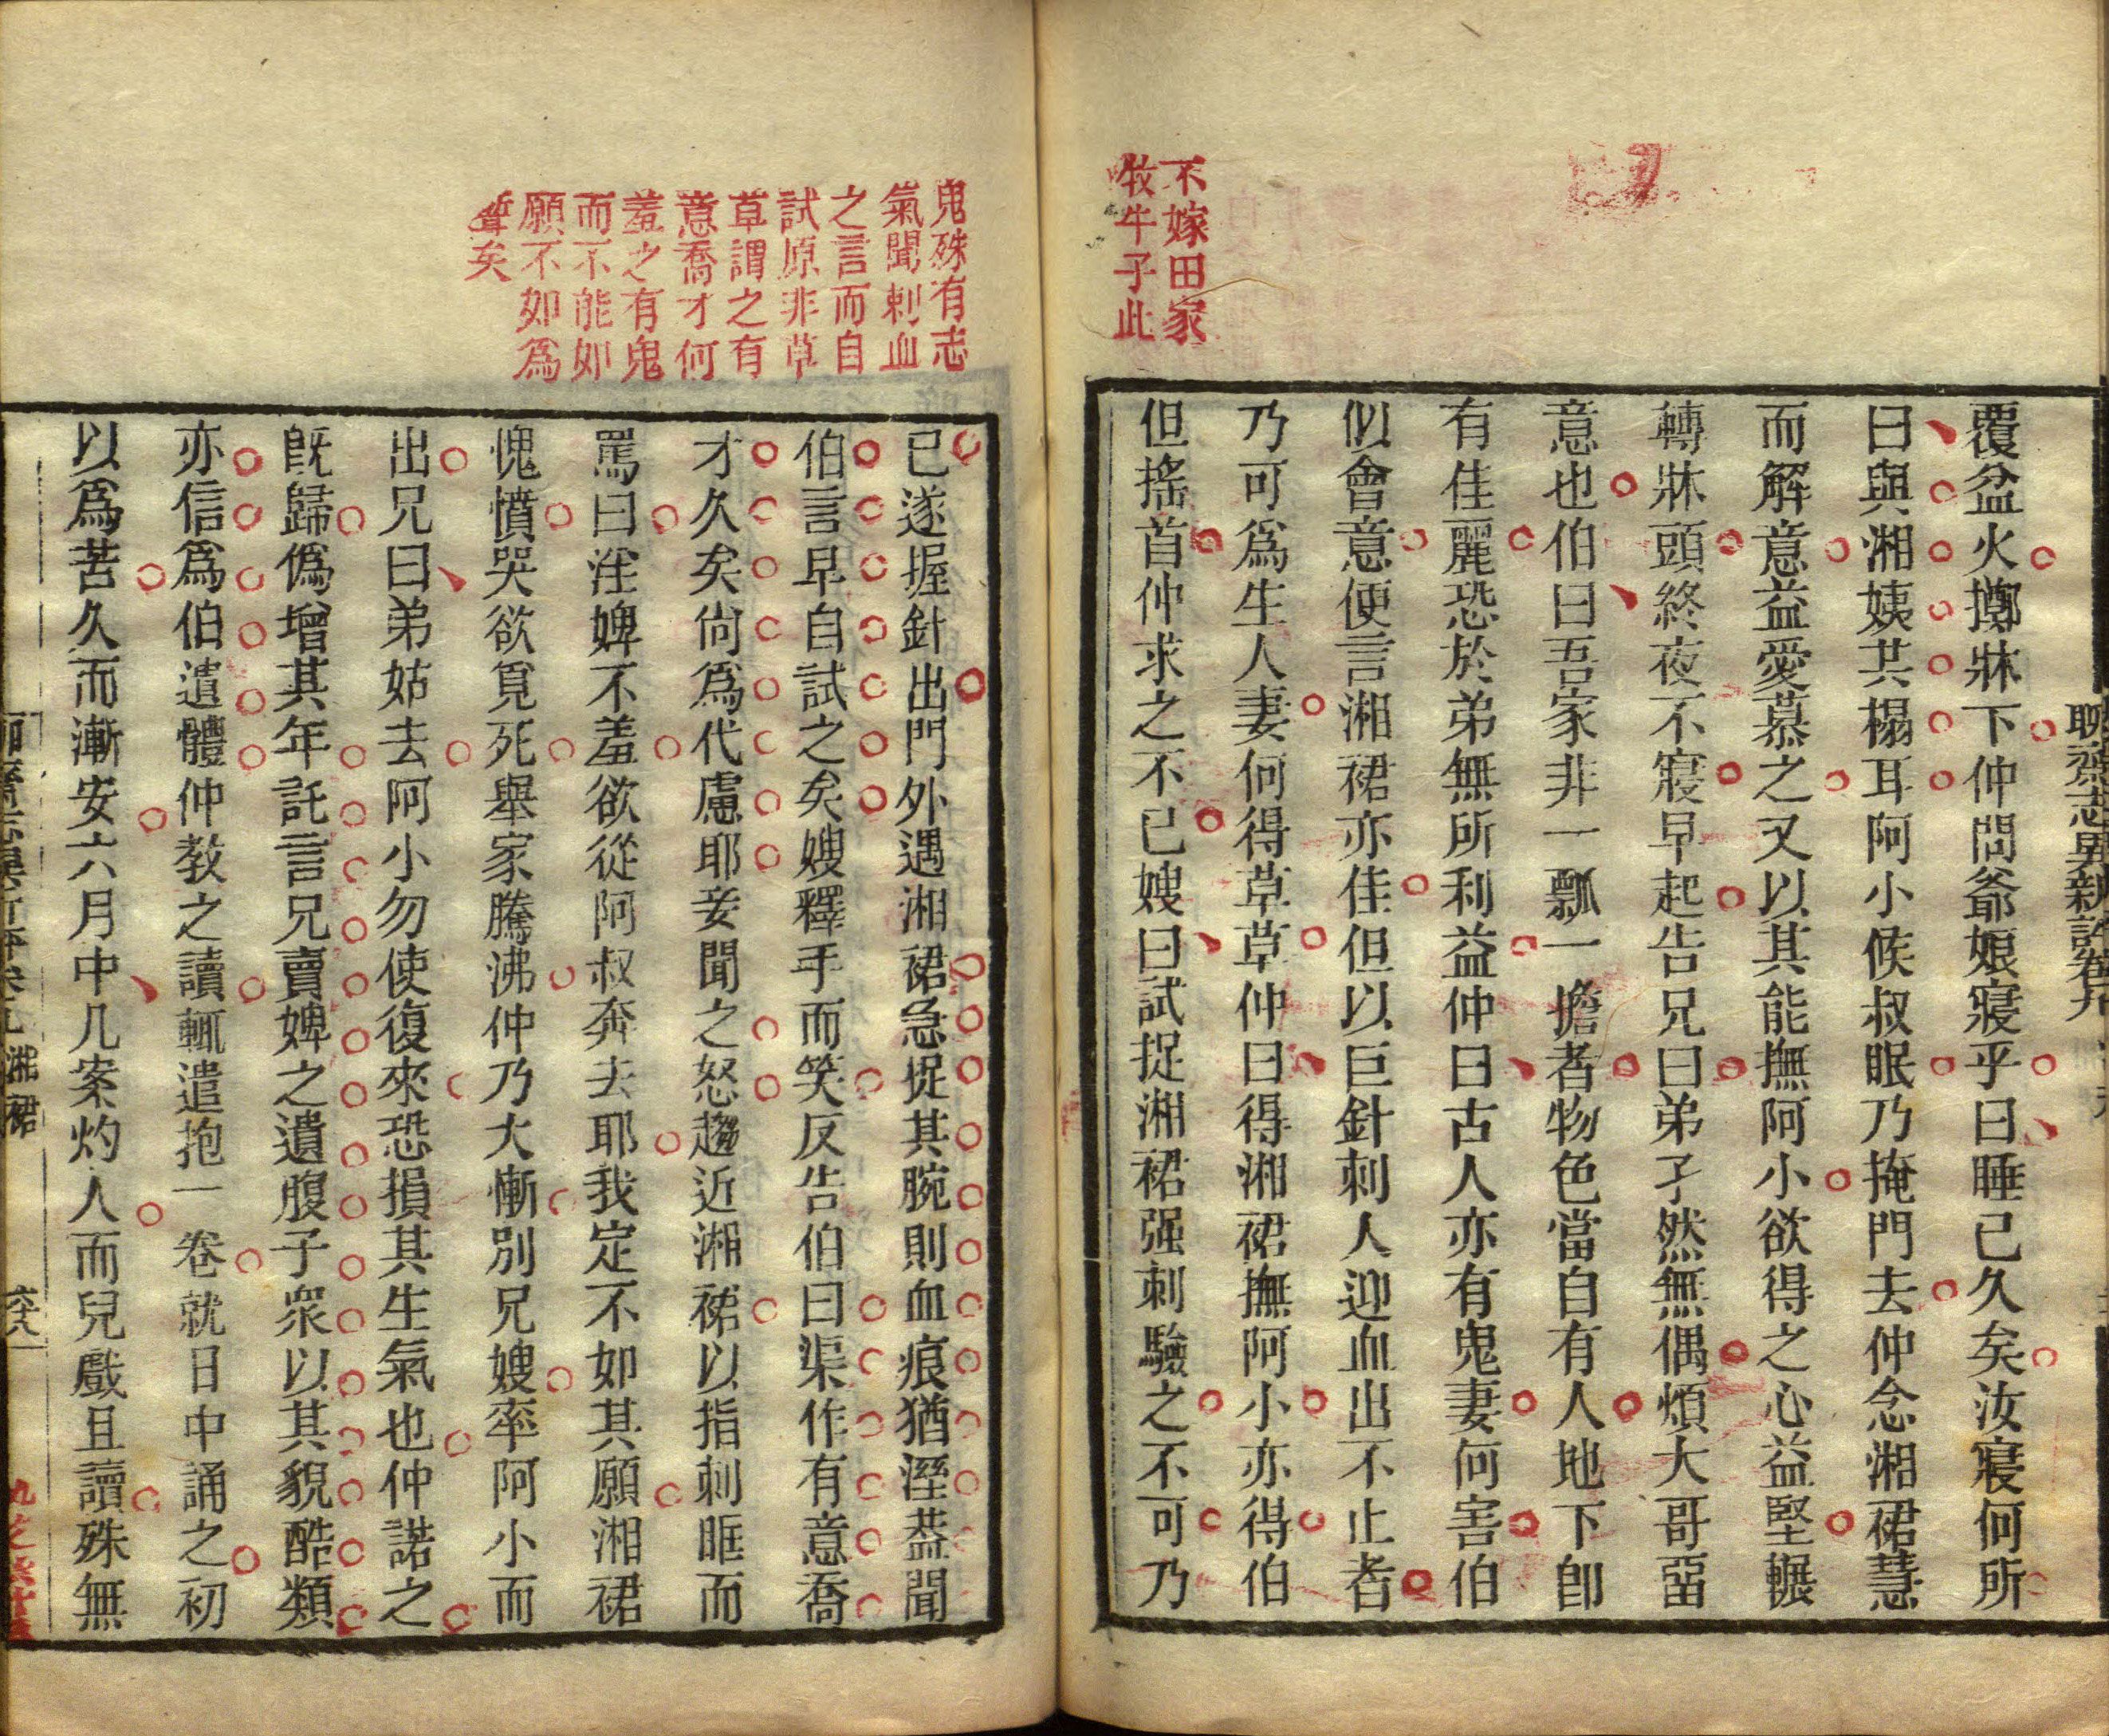 聊齋志異新評卷九
覆盆火擲牀下仲問爺娘寢乎曰睡已久矣汝寢何所
曰與湘姨共榻耳阿小候叔眠乃掩門去仲念湘裙慧
而解意益愛慕之又以其能撫阿小欲得之心益堅輾
轉牀頭終夜不寢早起告兄曰弟孑然無偶煩大哥畱
意也伯曰吾家非一瓢一擔者物色當自有人地下卽
有佳麗恐於弟無所利益仲曰古人亦有鬼妻何害伯
似會意便言湘裙亦佳但以巨針刺人迎血出不止者
乃可爲生人妻何得草草仲曰得湘裙撫阿小亦得伯
但搖首仲求之不已嫂曰試捉湘裙强刺驗之不可乃
不嫁田家
牧牛子此
已遂握針出門外遇湘裙急捉其腕則血痕猶溼葢聞
伯言早自試之矣嫂釋手而笑反告伯曰渠作有意喬
才久矣尙爲代慮耶妾聞之怒趨近湘裙以指刺眶而
罵曰淫婢不羞欲從阿叔奔去耶我定不如其願湘裙
愧憤哭欲覓死舉家騰沸仲乃大慚別兄嫂率阿小而
出兄曰弟姑去阿小勿使復來恐損其生氣也仲諾之
旣歸僞增其年託言兄賣婢之遺腹子衆以其貌酷類
亦信爲伯遺體仲教之讀輒遣抱一卷就日中誦之初
以爲苦久而漸安六月中几案灼人而兒戲且讀殊無
鬼殊有志
氣聞刺血
之言而自
試原非草
草謂之有
意喬才何
羞之有鬼
而不能如
願不如爲
聻矣
湘裙
六八